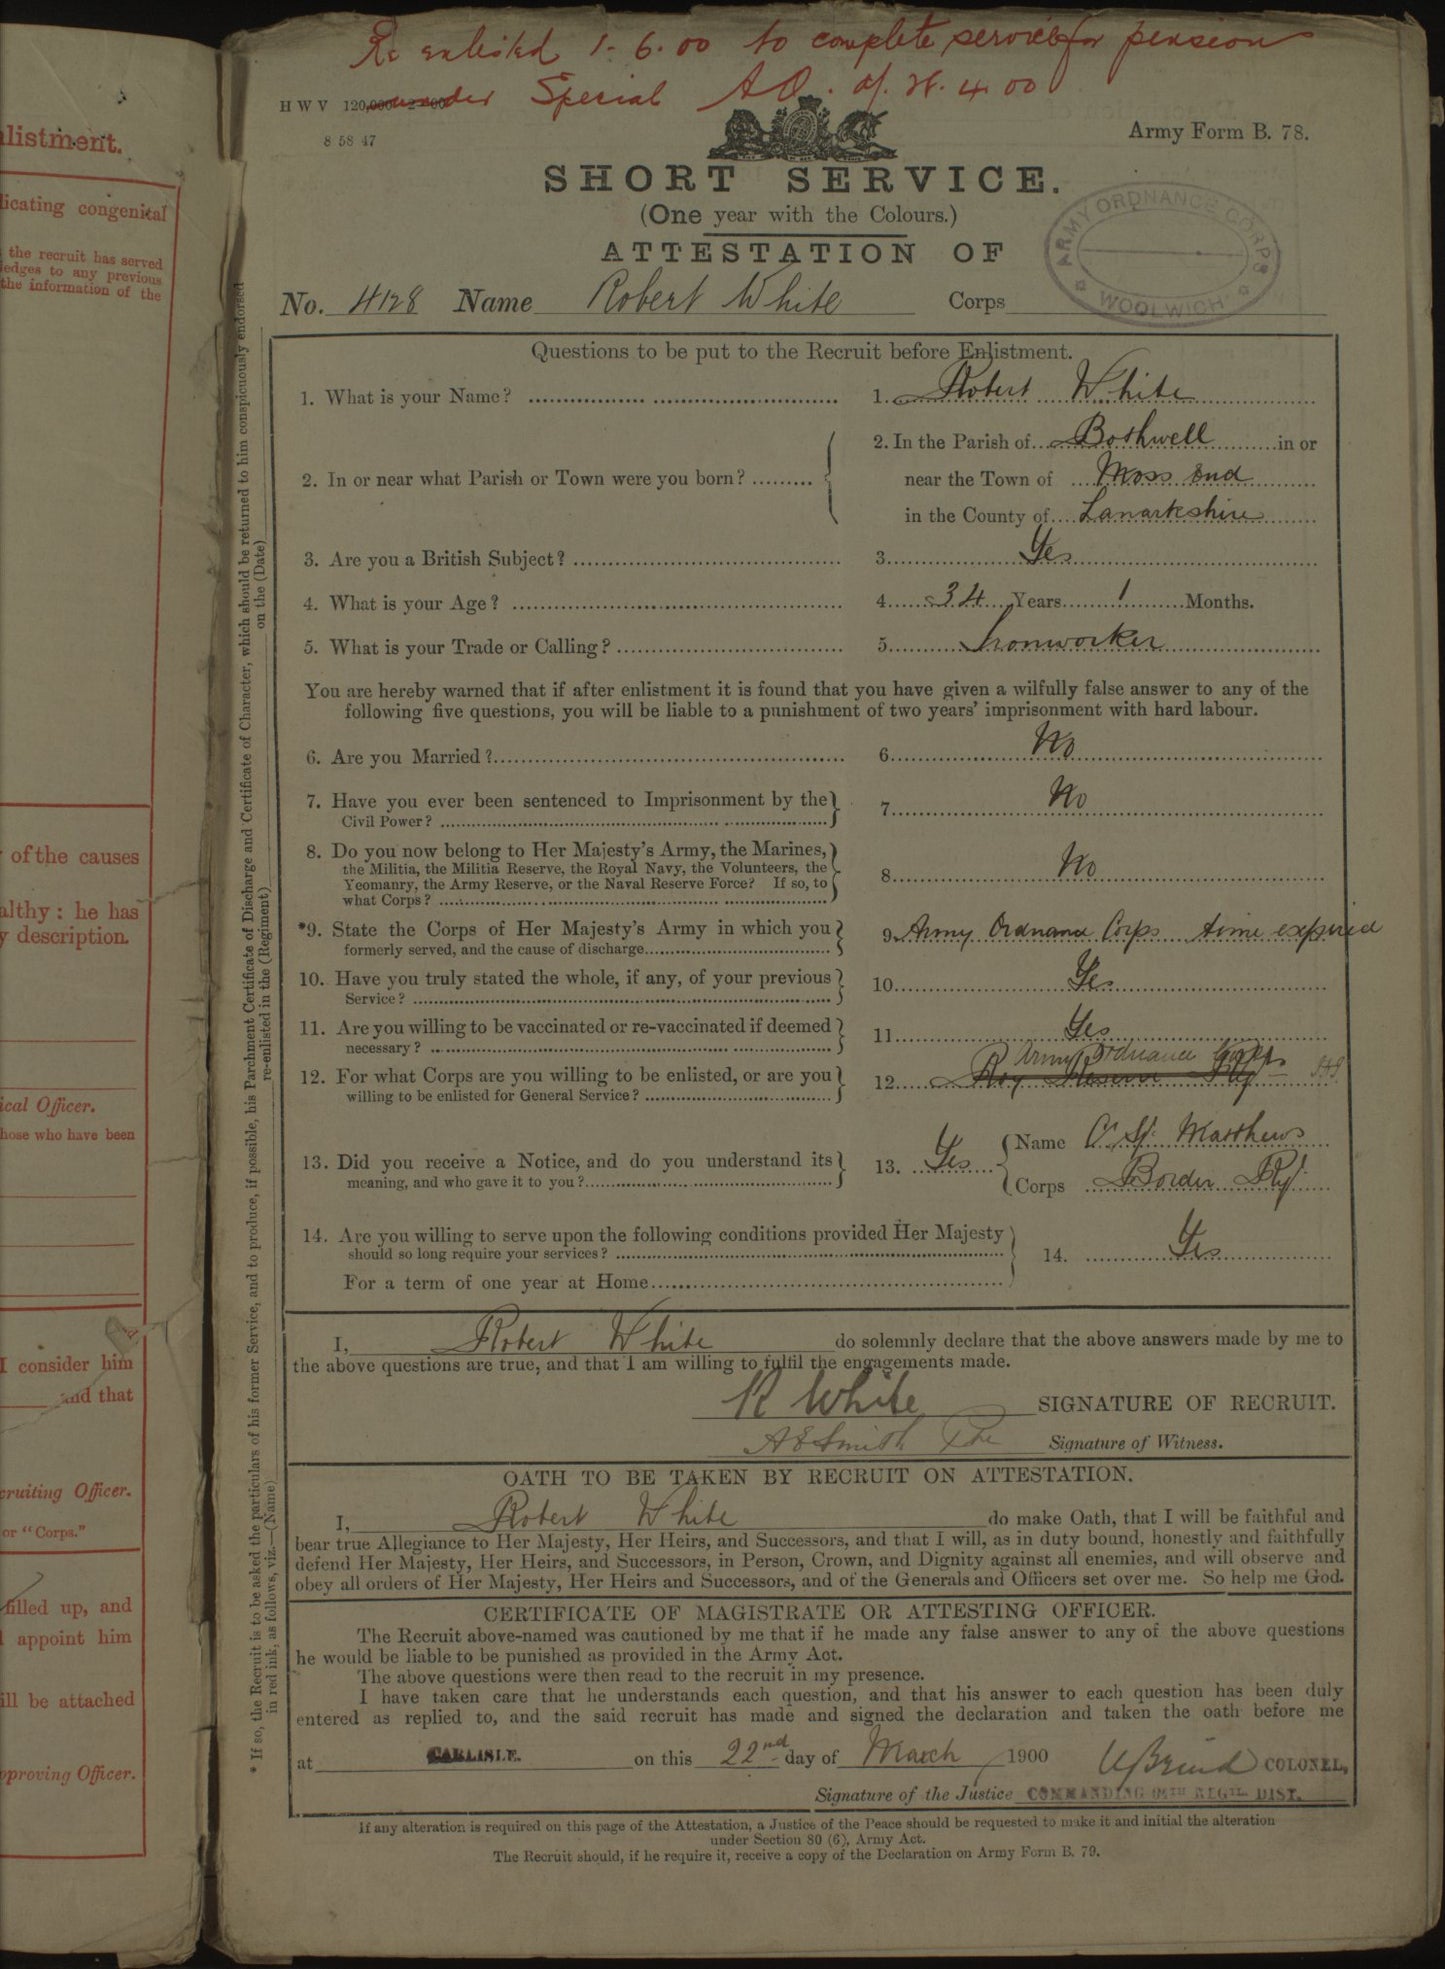 Re enlisted 1.6.00 to complete service for pension
under Special A.O. of 4.00
H W V 120,000 2—00
8 58 47
Army Form B. 78.
SHORT SERVICE.
(One year with the Colours.)
ATTESTATION OF
ARMY ORDNANCE CORPS WOOLWICH
No. 4128 Name Robert White Corps
Questions to be put to the Recruit before Enlistment.
1. What is your Name? 1. Robert White
2. In or near what Parish or Town were you born? 2. In the Parish of Bothwell in or
near the Town of Moss End
in the County of Lanarkshire
3. Are you a British Subject? 3. Yes
4. What is your Age? 4. 34 Years 1 Months.
5. What is your Trade or Calling? 5. Ironworker
You are hereby warned that if after enlistment it is found that you have given a wilfully false answer to any of the
following five questions, you will be liable to a punishment of two years' imprisonment with hard labour.
6. Are you Married? 6. No
7. Have you ever been sentenced to Imprisonment by the
Civil Power? 7. No
8. Do you now belong to Her Majesty's Army, the Marines,
the Militia, the Militia Reserve, the Royal Navy, the Volunteers, the
Yeomanry, the Army Reserve, or the Naval Reserve Force? If so, to
what Corps? 8. No
*9. State the Corps of Her Majesty's Army in which you
formerly served, and the cause of discharge 9. Army Ordnance Corps time expired
10. Have you truly stated the whole, if any, of your previous
Service? 10. Yes
11. Are you willing to be vaccinated or re-vaccinated if deemed
necessary? 11. Yes
Army Ordnance Corps
12. For what Corps are you willing to be enlisted, or are you
willing to be enlisted for General Service? 12. Roy Reserve Rgt
13. Did you receive a Notice, and do you understand its
meaning, and who gave it to you? 13. Yes Name Matthews
Corps Border Rgt
14. Are you willing to serve upon the following conditions provided Her Majesty
should so long require your services? 14. Yes
For a term of one year at Home
I, Robert White do solemnly declare that the above answers made by me to
the above questions are true, and that I am willing to fulfil the engagements made.
R White SIGNATURE OF RECRUIT.
A E Smith Pte Signature of Witness.
OATH TO BE TAKEN BY RECRUIT ON ATTESTATION.
I, Robert White do make Oath, that I will be faithful and
bear true Allegiance to Her Majesty, Her Heirs, and Successors, and that I will, as in duty bound, honestly and faithfully
defend Her Majesty, Her Heirs, and Successors, in Person, Crown, and Dignity against all enemies, and will observe and
obey all orders of Her Majesty, Her Heirs and Successors, and of the Generals and Officers set over me. So help me God.
CERTIFICATE OF MAGISTRATE OR ATTESTING OFFICER.
The Recruit above-named was cautioned by me that if he made any false answer to any of the above questions
he would be liable to be punished as provided in the Army Act.
The above questions were then read to the recruit in my presence.
I have taken care that he understands each question, and that his answer to each question has been duly
entered as replied to, and the said recruit has made and signed the declaration and taken the oath before me
at CARLISLE. on this 22nd day of March 1900 COLONEL,
Signature of the Justice COMMANDING REGTL. DIST.
If any alteration is required on this page of the Attestation, a Justice of the Peace should be requested to make it and initial the alteration
under Section 80 (6), Army Act.
The Recruit should, if he require it, receive a copy of the Declaration on Army Form B. 79.
* If so, the Recruit is to be asked the particulars of his former Service, and to produce, if possible, his Parchment Certificate of Discharge and Certificate of Character, which should be returned to him conspicuously endorsed
in red ink, as follows, viz.—(Name) re-enlisted in the (Regiment) on the (Date)
listment.
licating congenital
the recruit has served
ledges to any previous
the information of the
of the causes
althy: he has
y description.
ical Officer.
hose who have been
I consider him
and that
cruiting Officer.
or "Corps."
filled up, and
appoint him
ill be attached
pproving Officer.